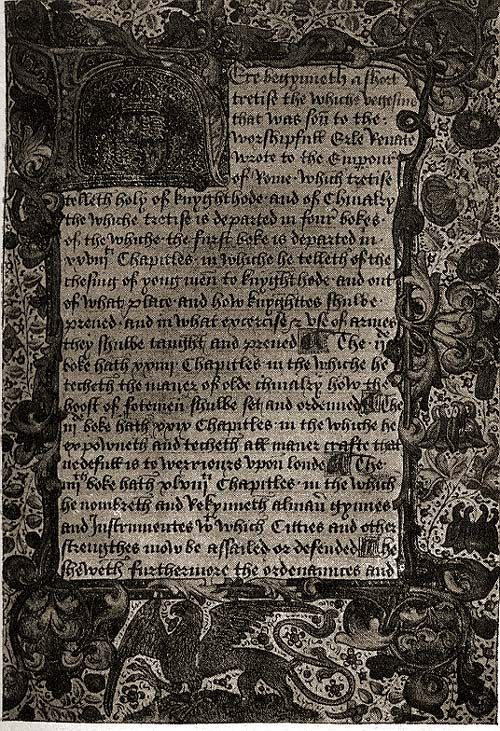 Ere begynneth a short
tretise the whiche vegesius
that was son to the
worshipfull Erle Renate
wrote to the Emporur
of Rome Which tretise
telleth holy of knyghthode and of Chiualry
the whiche tretise is departed in four bokes
of the whiche the furst boke is departed in
xxviij Chapitles in whiche he telleth of the
chesing of yong men to knyghthode and out
of what place and how knyghttes shulbe
preued and in what excercise & vse of armes
they shulbe taught and preued The ij
boke hath xxv Chapitles in the whiche he
techeth the maner of olde chiualry how the
hoost of fotemen shulbe set and ordeined The
iij boke hath Chapitles in the which he
expowneth and techeth all maner crafte that
nedefull is to werrioure vpon londe The
iiij the boke hath xlviij Chapitles in the which
he nombreth and Rekynneth alman gynnes
and Instrumentes with Which Citties and other
strengthes mow be assailed or defended And he
sheweth furthermore the ordenaunces and